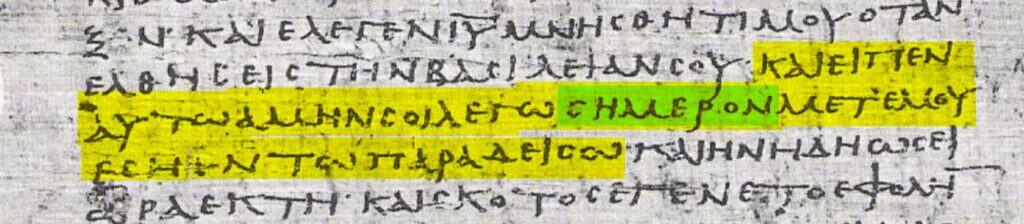 Ν· ΚΑΙΕΛΕΓΕΝΙ̅Υ̅ΜΝΗϹΘΗΤΙΜΟΥΟΤΑΝ
ΕΛΘΗϹΕΙϹΤΗΝΒΑϹΙΛΕΙΑΝϹΟΥ·ΚΑΙΕΙΠΕΝ
ΑΥΤΩΑΜΗΝϹΟΙΛΕΓΩϹΗΜΕΡΟΝΜΕΤ'ΕΜΟΥ
ΕϹΗΕΝΤΩΠΑΡΑΔΕΙϹΩ ΚΑΙΗΝΗΔΗΩϹΕΙ
ΩΡΑΕΚΤΗ·ΚΑΙϹΚΟΤΟϹΕΓΕΝΕΤΟΕΦΟΛΗ